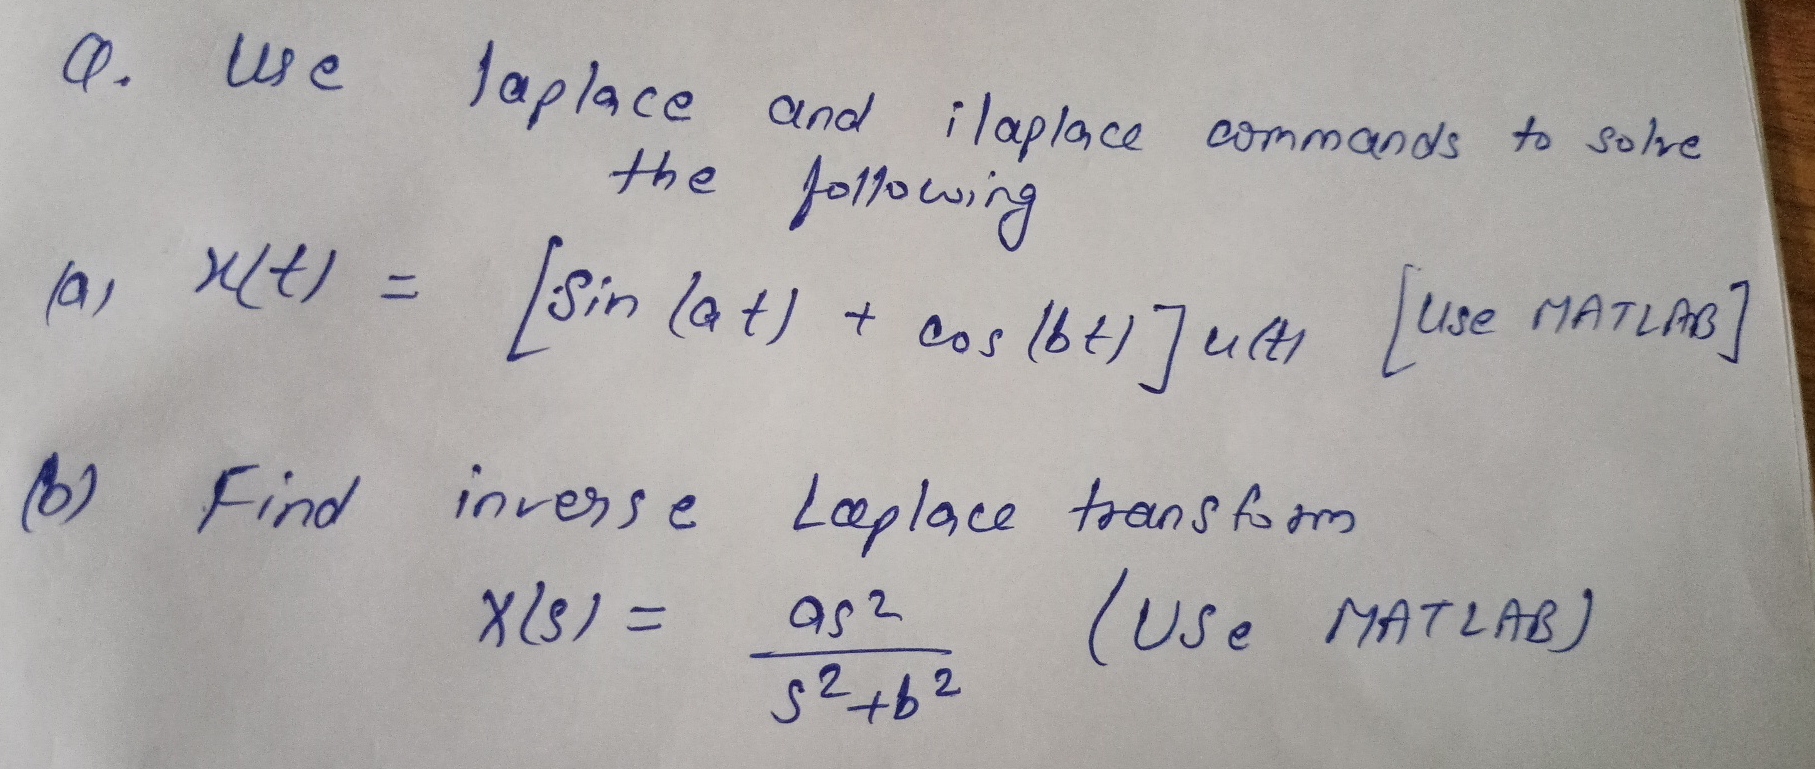 Q. Use laplace and ilaplace commands to solve
the following
(a) x(t) = [sin (at) + cos (bt)] u(t) [Use MATLAB]
(b) Find inverse Laplace transform
X(s) = as²
s²+b² (Use MATLAB)